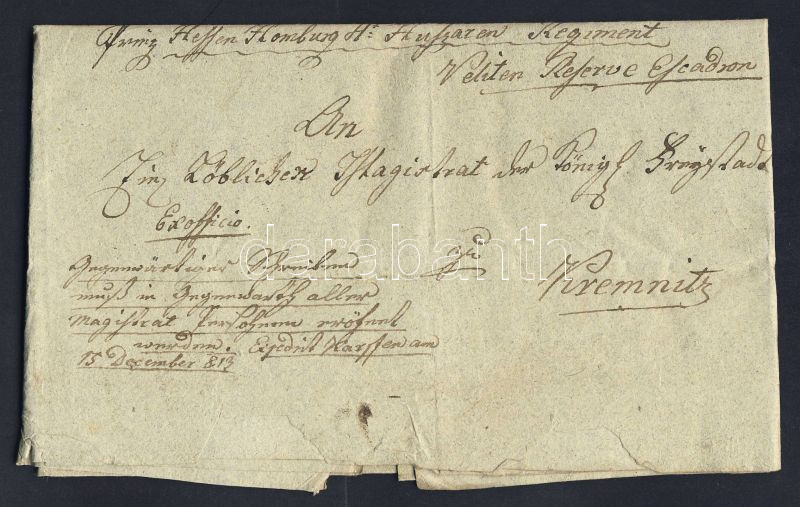 Prinz Hessen Homburg H: Huszaren Regiment
Veliten Reserve Escadron
An
Löblichen Magistrat der Königl Freystadt
Exofficio.
Kremnitz
Gegenwärtiges Schreiben
muß in Gegenwarth aller
Magistrat Persohnen eröfnet
werden. Expedirt am
15 December 813
darabanth